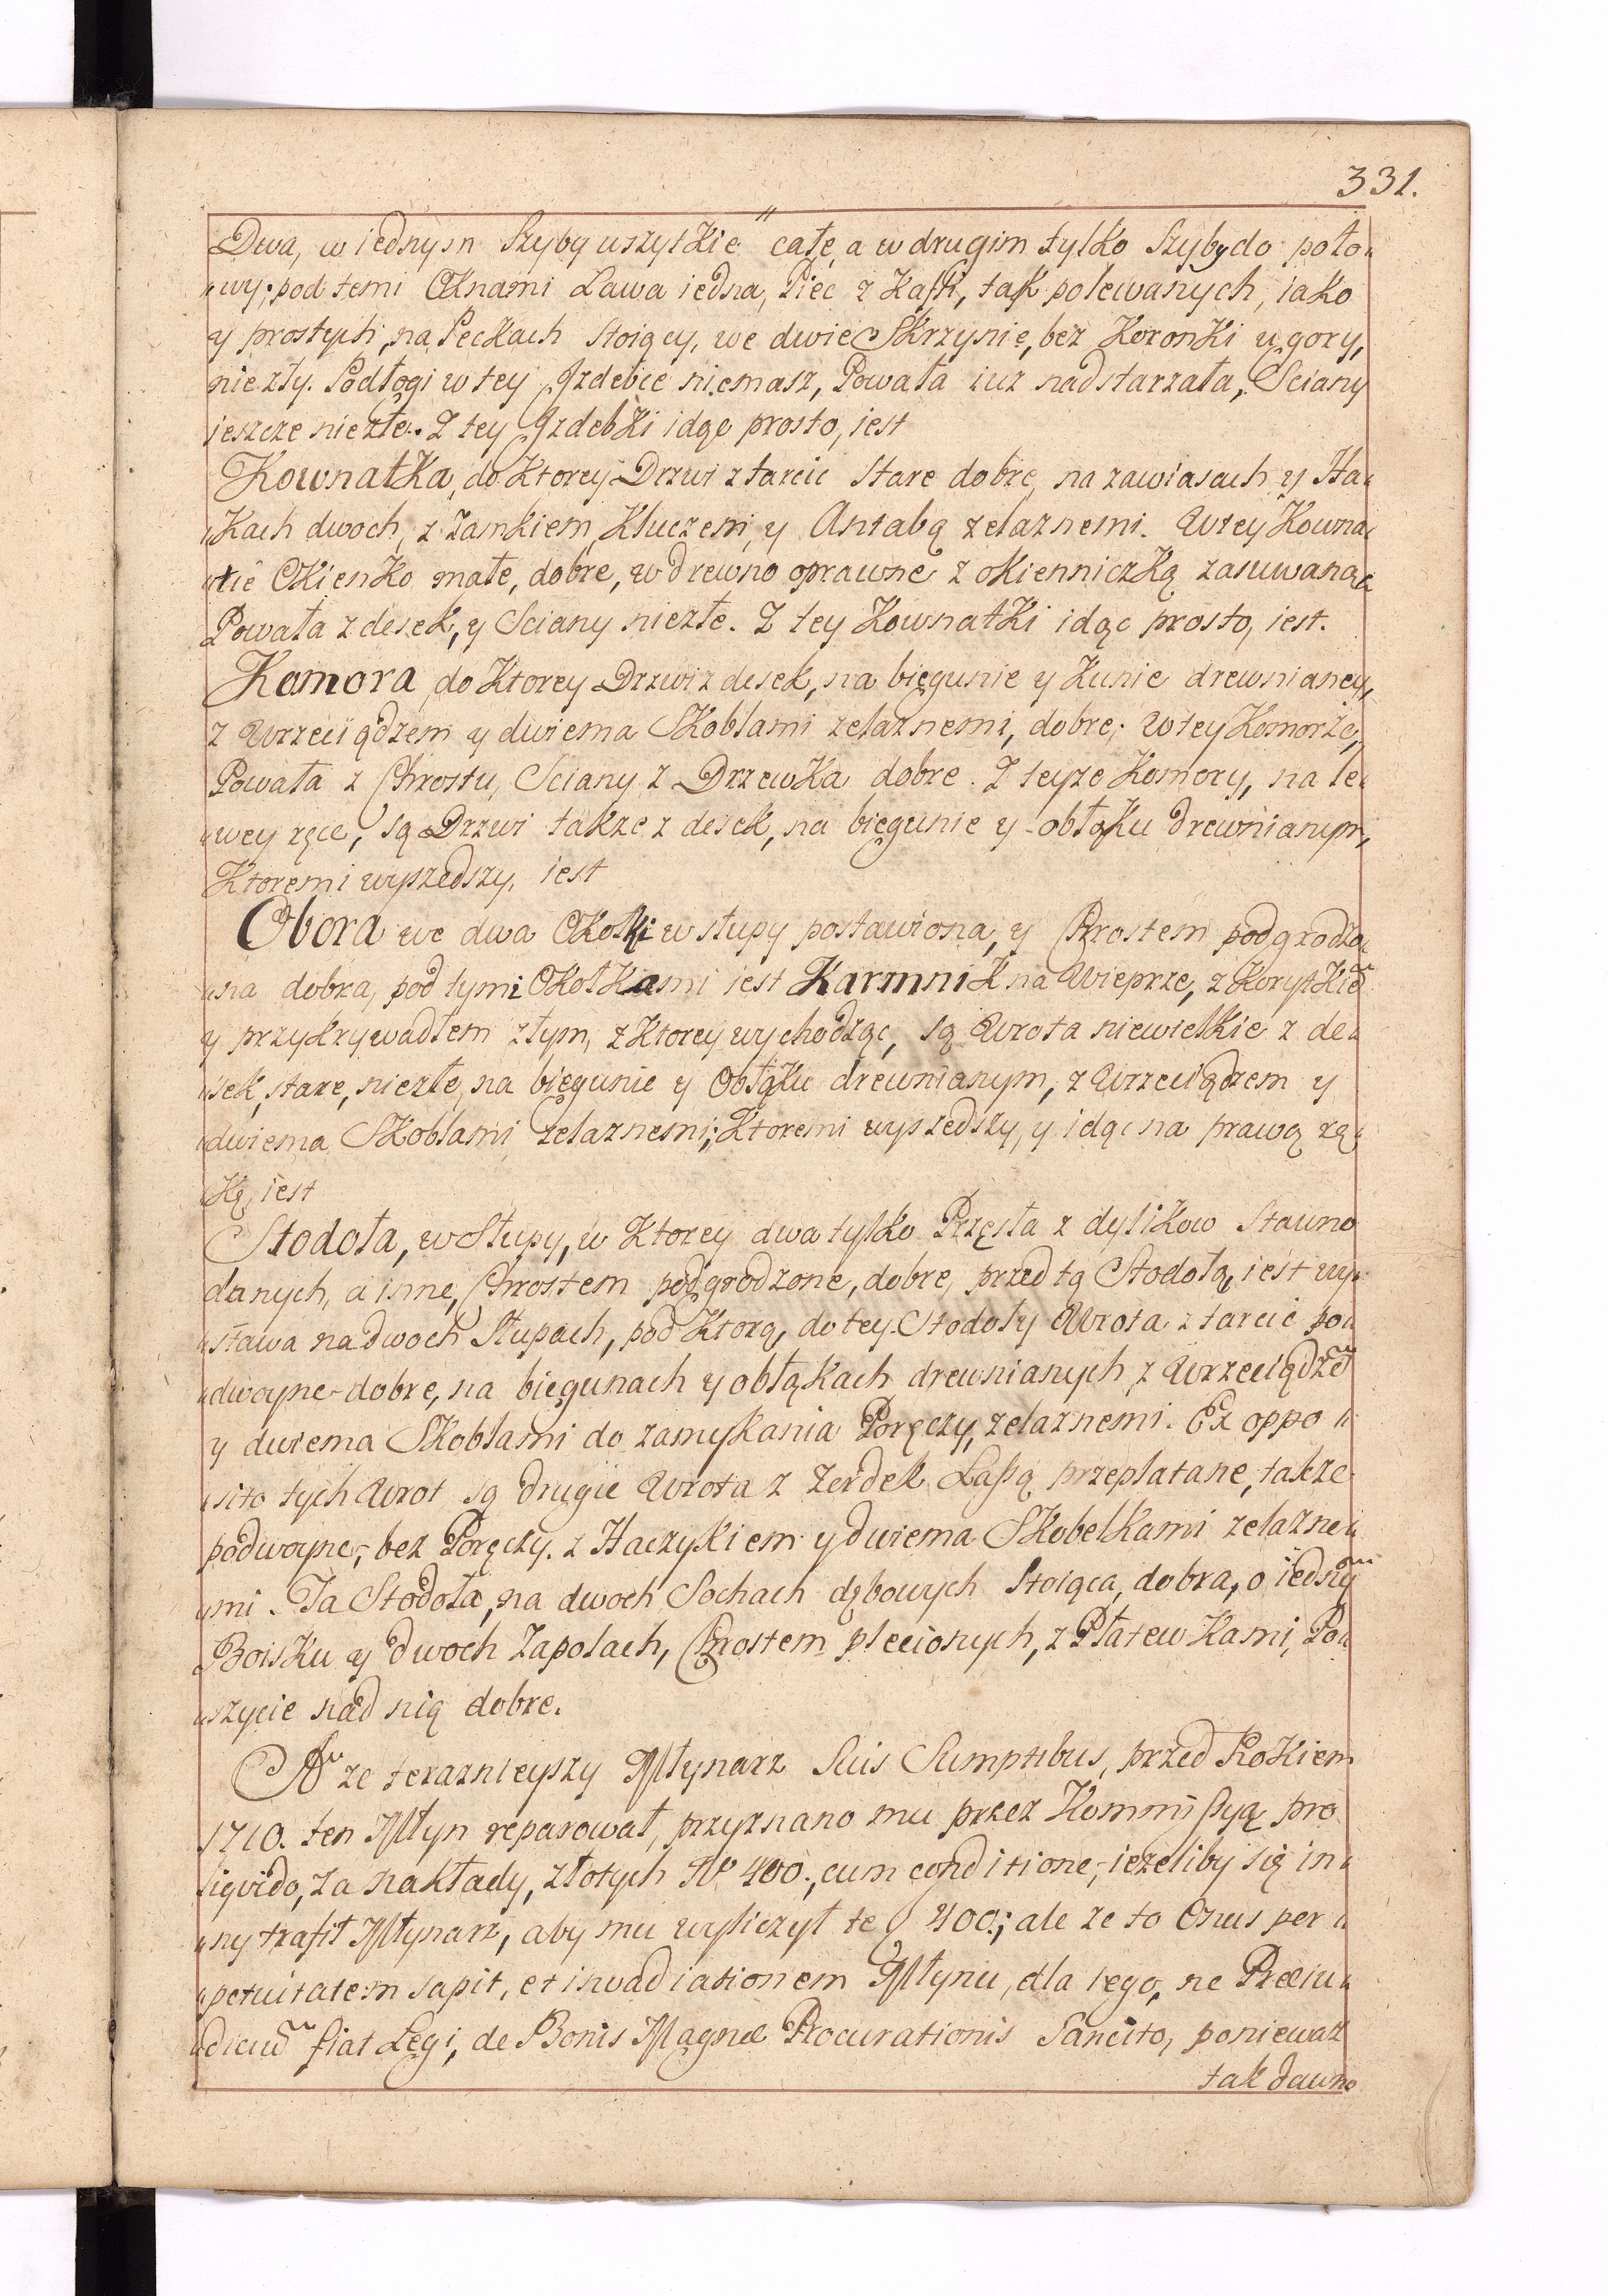 331.
Dwa, w iednym Szyby wszytkie " całe, a w drugim tylko Szyby do poło„
„wy; pod temi Oknami Ława iedna, Piec z Kafli, tak polewanych, iako
y prostych, na Peckach stoiący, we dwie Skrzynie, bez Koronki u gory,
niezły. Podłogi w tey Izdebce niemasz, Powała iuz nadstarzała, Sciany
jeszcze niezłe. Z tey Izdebki idąc prosto, iest
Kownatka, do Ktorey Drzwi z tarcic stare dobre, na zawiasach y Ha„
„Kach dwoch, z zamkiem, Kluczem, y Antabą zelaznemi. W tey Kowna„
„tce Okienko małe, dobre, w drewno oprawne z okienniczką zasuwaną,
Powała z desek, y Sciany niezłe. Z tey Kownatki idąc prosto, iest.
Komora do Ktorey Drzwi z desek, na biegunie y Kunie drewnianey,
z Wrzeciądzem y dwiema Skoblami zelaznemi, dobre; W tey Komorze,
Powała z Chrostu, Sciany z Drzewka dobre. Z teyze Komory, na le„
„wey ręce, są Drzwi takze z desek, na biegunie y obłąku drewnianym,
Ktoremi wyszedszy, iest
Obora we dwa Okołki w słupy postawiona, y Chrostem podgrodzo„
„na dobra, pod tymi Okołkami iest Karmnik na Wieprze, z Korytkiē
y przykrywadłem złym, z Ktorey wychodząc, są Wrota niewielkie z de„
„sek, stare, niezłe, na biegunie y Obłąku drewnianym, z Wrzeciądzem y
dwiema Skoblami zelaznemi; Ktoremi wyszedszy, y idąc na prawą rę„
„Kę, iest
Stodoła, w Słupy, w Ktorey dwa tylko Przęsła z dylikow stawno
danych, a inne, Chrostem podgrodzone, dobre, przed tą Stodołą, iest wy„
„stawa na dwoch Słupach, pod Ktorą, do tey Stodoły Wrota z tarcic po„
„dwoyne dobre, na biegunach y obłąkach drewnianych, z Wrzeciądzē
y dwiema Skoblami do zamykania Poręczy, zelaznemi. Ex oppo„
„sito tych Wrot są drugie Wrota z Zerdek Łasą przeplatane, takze
podwoyne, bez Poręczy. z Haczykiem y dwiema Skobelkami zelazne„
„mi. Ta Stodoła, na dwoch Sochach dębowych stoiąca, dobra, o iednȳ
Boisku y dwoch Zapolach, Chrostem plecionych, z Płatewkami, Po„
„szycie nad nią dobre.
A ze teraznieyszy Młynarz Suis Sumptibus, przed Rokiem
1710. ten Młyn reparował, przyznano mu przez Kommissyą pro
liqvido, za nakłady, złotych No 400., cum conditione, iezeliby się in„
„ny trafił Młynarz, aby mu wyliczył te 400.; ale ze to Onus per„
„petuitatem sapit, et invadiationem Młynu, dla tego, ne Præiu„
„diciū fiat Legi, de Bonis Magnæ Procurationis Sancito, poniewaz
tak dawno